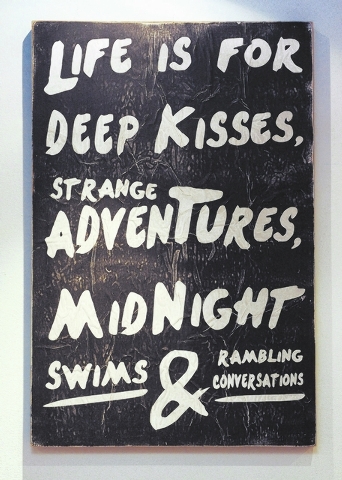 LIFE IS FOR
DEEP KISSES,
STRANGE
ADVENTURES,
MIDNIGHT
SWIMS & RAMBLING
CONVERSATIONS